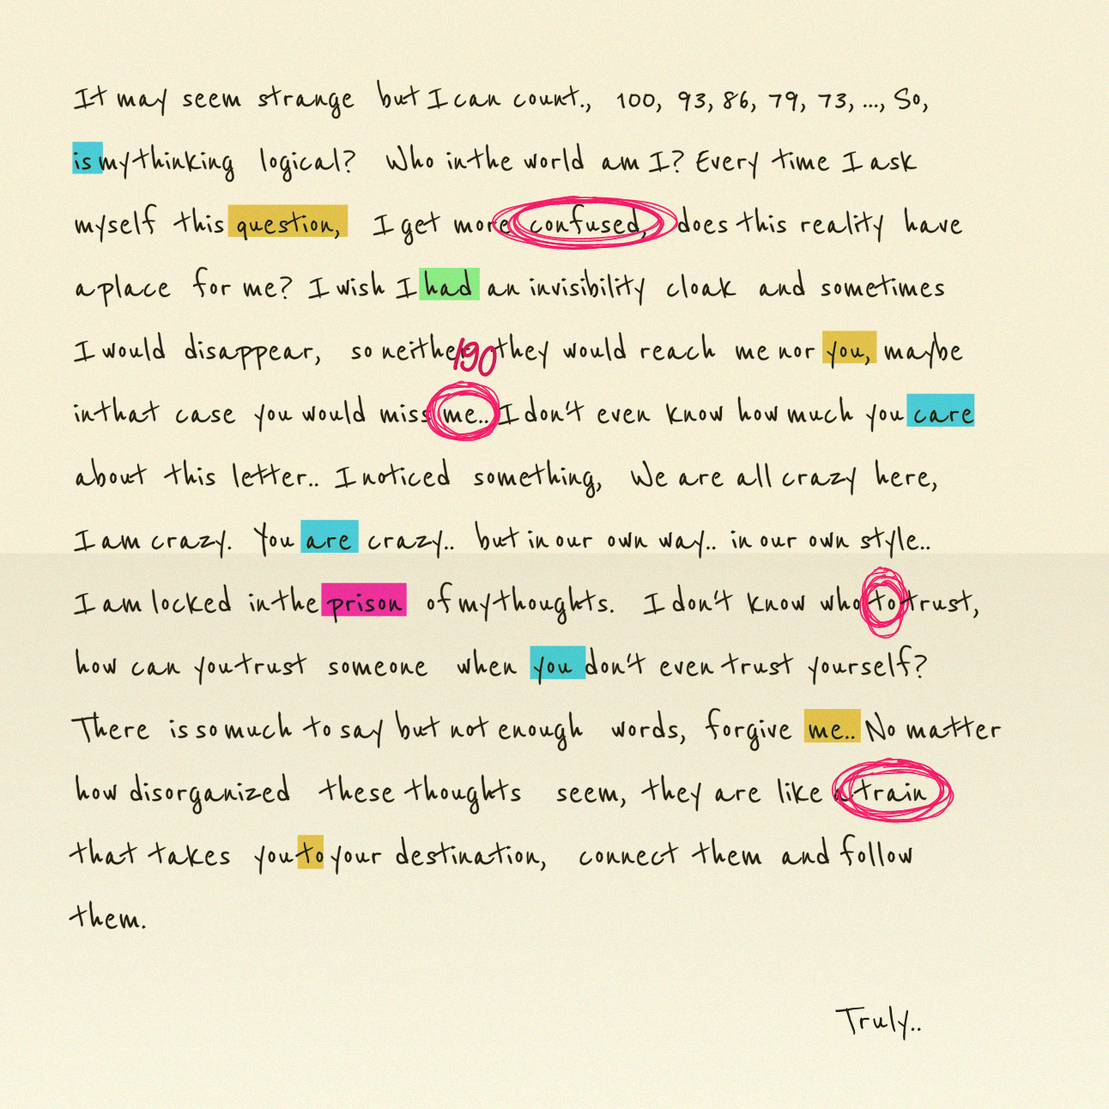 It may seem strange but I can count., 100, 93, 86, 79, 73, ..., So,
is my thinking logical? Who in the world am I? Every time I ask
myself this question, I get more confused, does this reality have
a place for me? I wish I had an invisibility cloak and sometimes
I would disappear, so neither 190 they would reach me nor you, maybe
in that case you would miss me.. I don't even know how much you care
about this letter.. I noticed something, We are all crazy here,
I am crazy. You are crazy.. but in our own way.. in our own style..
I am locked in the prison of my thoughts. I don't know who to trust,
how can you trust someone when you don't even trust yourself?
There is so much to say but not enough words, forgive me.. No matter
how disorganized these thoughts seem, they are like a train
that takes you to your destination, connect them and follow
them.
Truly..